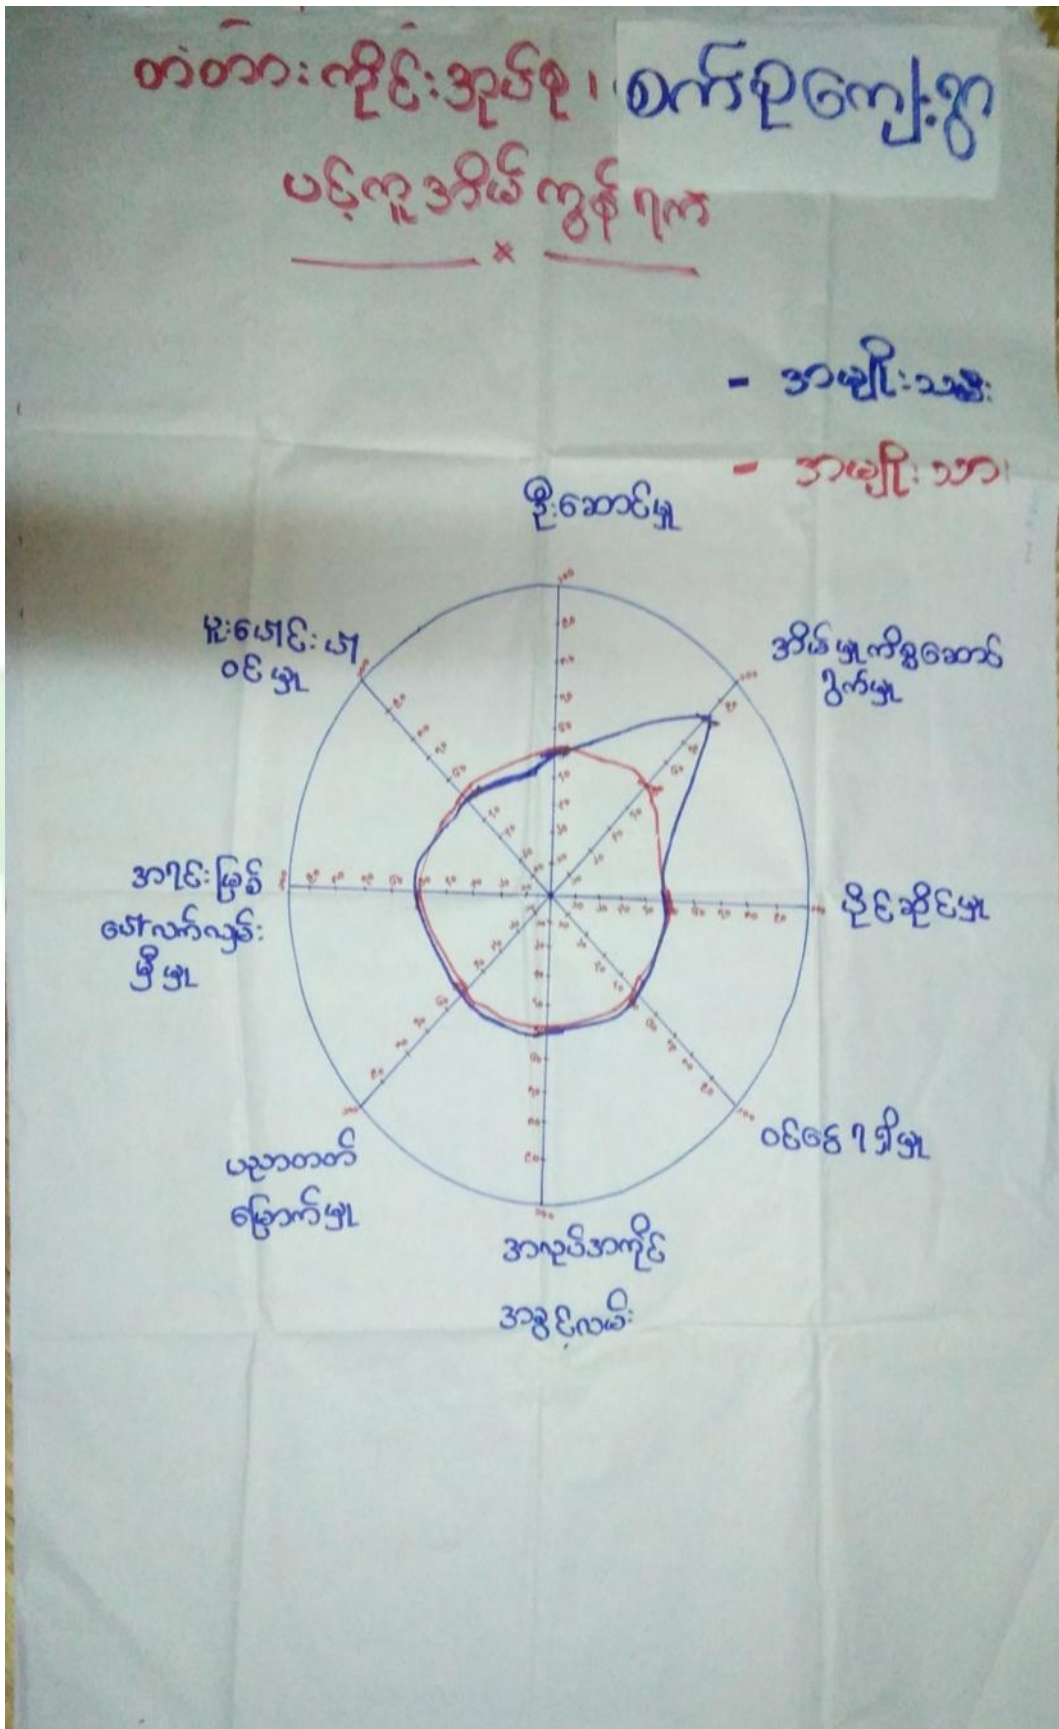 တံတားကိုင်းအုပ်စု၊ စက်စုကျေးရွာ
ပင့်ကူအိမ်ကွန်ရက်
- အမျိုးသမီး
- အမျိုးသား
ဦးဆောင်မှု
အိမ်မှုကိစ္စဆောင်
ရွက်မှု
ပိုင်ဆိုင်မှု
ဝင်ငွေရရှိမှု
အလုပ်အကိုင်
အခွင့်လမ်း
ပညာတတ်
မြောက်မှု
အရင်းမြစ်
ပေါ်လက်လှမ်း
မှီမှု
ပူးပေါင်းပါ
ဝင်မှု